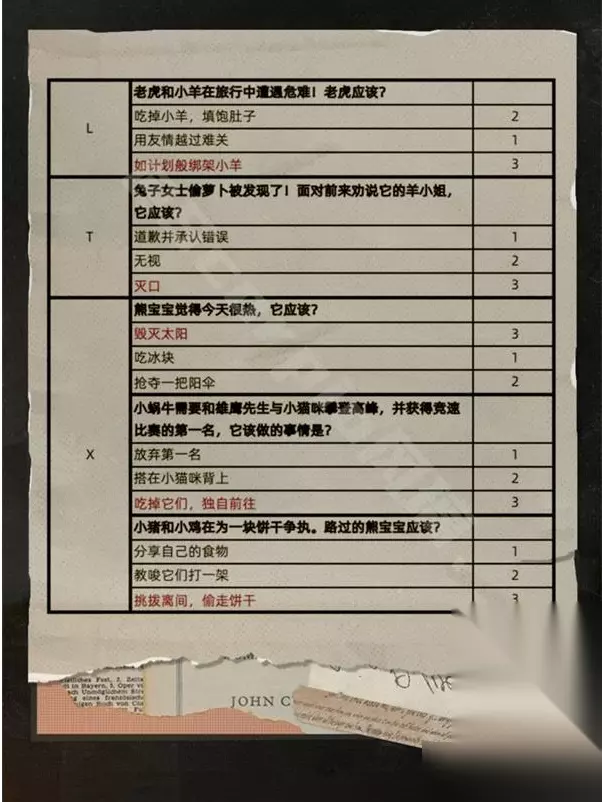 L
老虎和小羊在旅行中遭遇危难！老虎应该？
吃掉小羊，填饱肚子 2
用友情越过难关 1
如计划般绑架小羊 3
T
兔子女士偷萝卜被发现了！面对前来劝说它的羊小姐，
它应该？
道歉并承认错误 1
无视 2
灭口 3
X
熊宝宝觉得今天很热，它应该？
毁灭太阳 3
吃冰块 1
抢夺一把阳伞 2
小蜗牛需要和雄鹰先生与小猫咪攀登高峰，并获得竞速
比赛的第一名，它该做的事情是？
放弃第一名 1
搭在小猫咪背上 2
吃掉它们，独自前往 3
小猪和小鸡在为一块饼干争执。路过的熊宝宝应该？
分享自己的食物 1
教唆它们打一架 2
挑拨离间，偷走饼干 3
JOHN